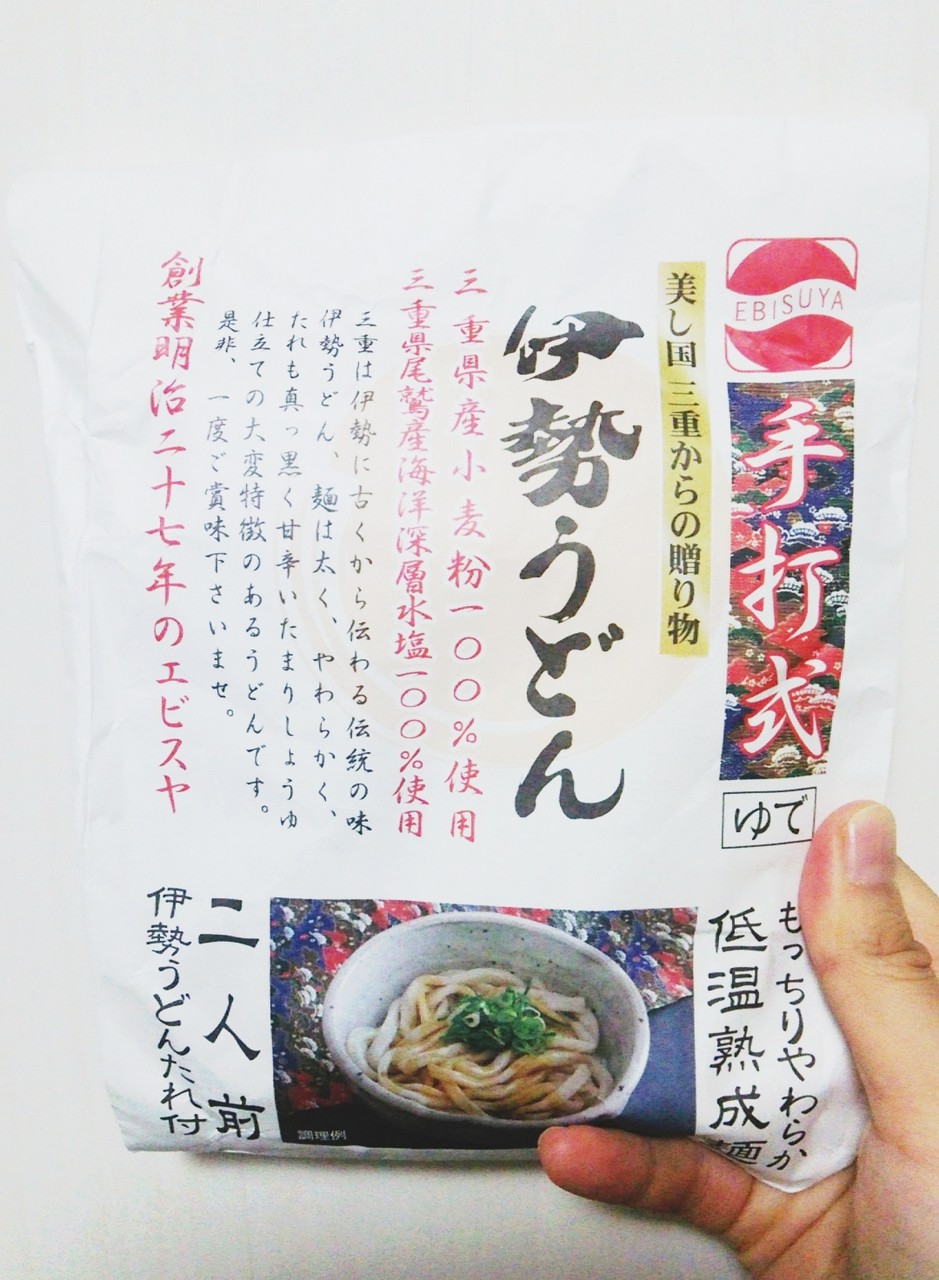 EBISUYA
手打式
ゆで
もっちりやわらか
低温熟成麺
美し国 三重からの贈り物
伊勢うどん
三重県産小麦粉一〇〇%使用
三重県尾鷲産海洋深層水塩一〇〇%使用
三重は伊勢に古くから伝わる伝統の味
伊勢うどん、麺は太く、やわらかく、
たれも真っ黒く甘辛いたまりしょうゆ
仕立ての大変特徴のあるうどんです。
是非、一度ご賞味下さいませ。
創業明治二十七年のエビスヤ
二人前
伊勢うどんたれ付
調理例